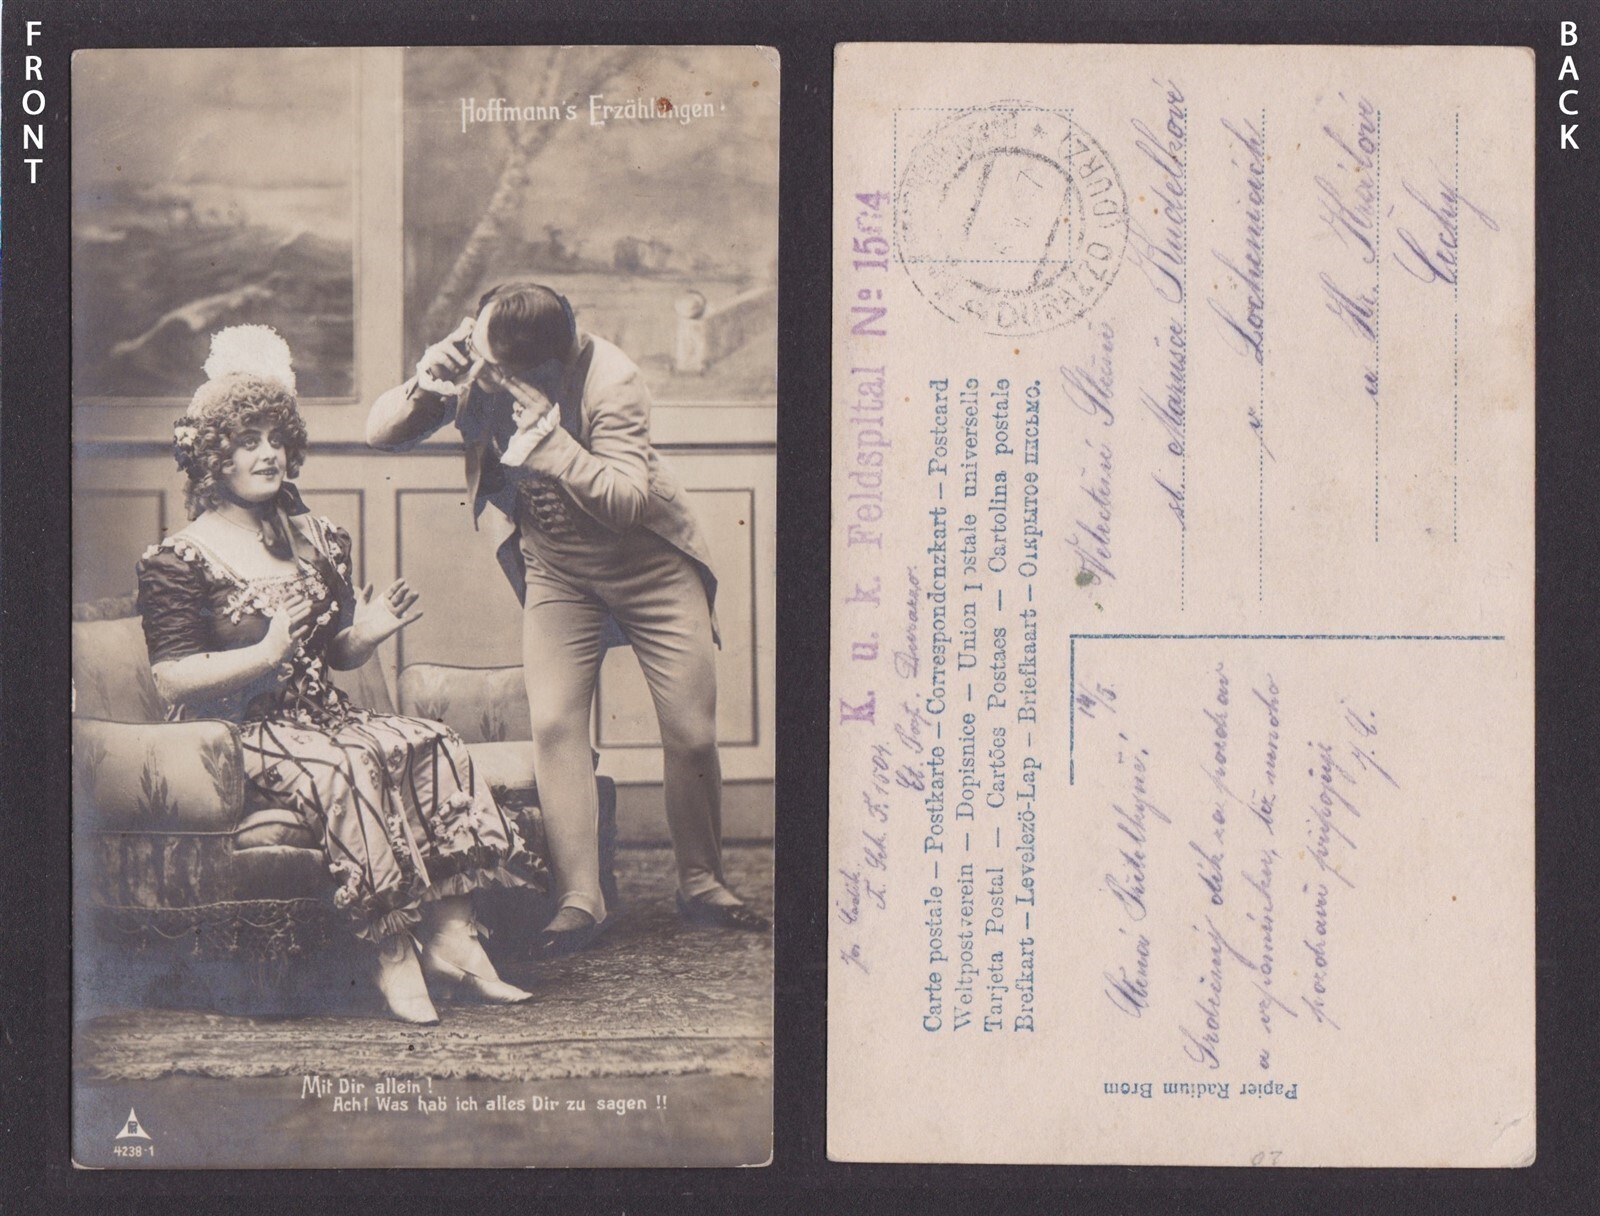 FRONT
Hoffmann's Erzählungen
Mit Dir allein!
Ach! Was hab ich alles Dir zu sagen!!
4238-1
BACK
K. u. k. Feldspital № 1504
DURAZZO (DURZ
K. 1504.
Et. Post. Durazzo.
Carte postale — Postkarte — Correspondenzkart — Postcard
Weltpostverein — Dopisnice — Union postale universelle
Tarjeta Postal — Cartões Postaes — Cartolina postale
Brefkart — Levelező-Lap — Briefkaart — Открытое письмо.
Velectěná Slečna
sl. Maruše Kudelkové
v Lochenicích
u Kr. Hradce
Čechy
14/5.
Ctěná
Srdečný dík za pozdrav
a vzpomínku, též mnoho
pozdravů připojuje
J. Č.
Papier Radium Brom